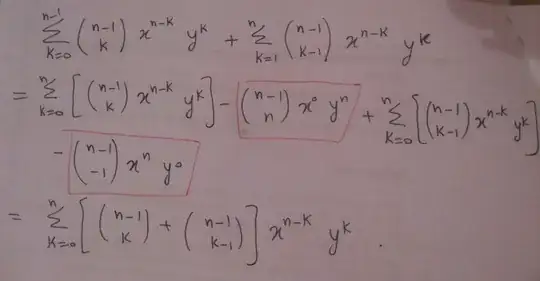 $\sum_{k=0}^{n-1} \binom{n-1}{k} x^{n-k} y^k + \sum_{k=1}^{n} \binom{n-1}{k-1} x^{n-k} y^k$
$= \sum_{k=0}^{n} \left[ \binom{n-1}{k} x^{n-k} y^k \right] - \binom{n-1}{n} x^0 y^n + \sum_{k=0}^{n} \left[ \binom{n-1}{k-1} x^{n-k} y^k \right]$
$- \binom{n-1}{-1} x^n y^0$
$= \sum_{k=0}^{n} \left[ \binom{n-1}{k} + \binom{n-1}{k-1} \right] x^{n-k} y^k .$